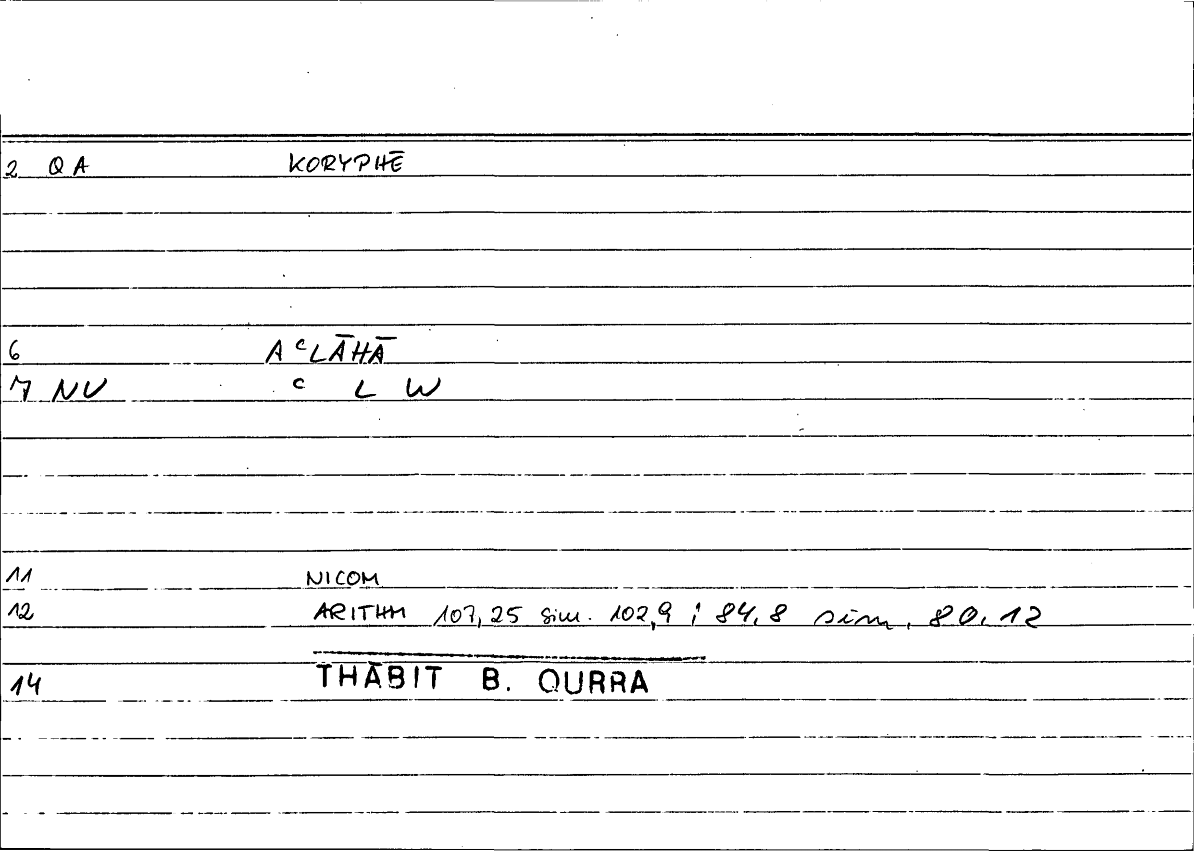 2 QA KORYPHĒ
6 AᶜLĀHĀ
7 NV ᶜ L W
11 NICOM
12 ARITHM 107,25 sim. 102,9 ; 84,8 sim. 80,12
14 THĀBIT B. QURRA